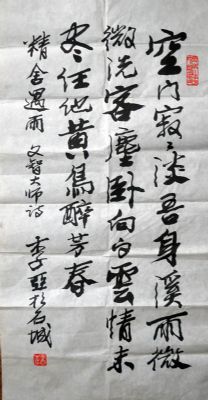 空门寂寂淡吾身溪雨微
微洗客尘卧向白云情未
尽任他黄鸟醉芳春
精舍遇雨 文智大师诗